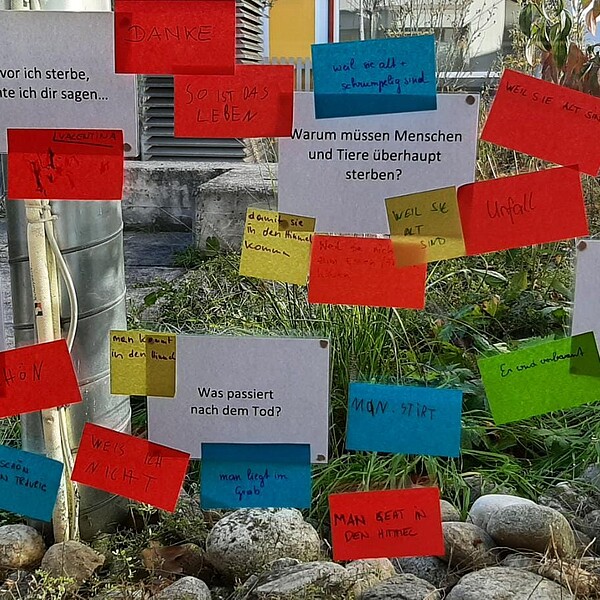 DANKE
vor ich sterbe,
te ich dir sagen...
SO IST DAS
LEBEN
weil sie alt +
schrumpelig sind
Warum müssen Menschen
und Tiere überhaupt
sterben?
WEIL SIE ALT
VALENTINA
damit sie
in den Himmel
komm
WEIL SIE
ALT
SIND
Unfall
man kommt
in den
Was passiert
nach dem Tod?
MAN STIRT
Er wird verbrannt
WEIS ICH
NICHT
man liegt im
Grab
MAN GEHT IN
DEN HIMMEL
SCHÖN
TRAURIG